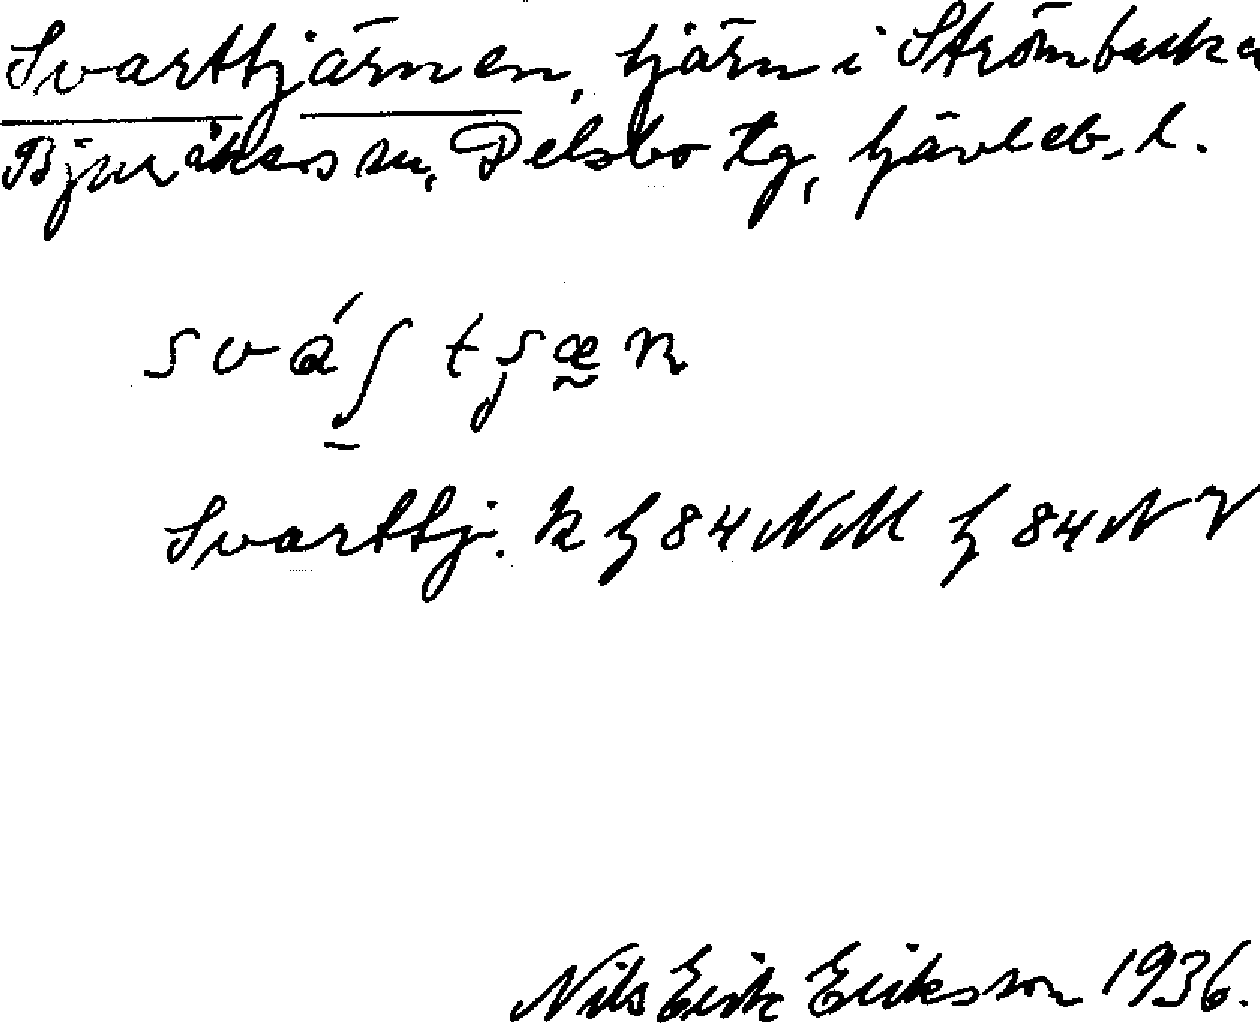 Svarttjärnen, tjärn i Strömbacka
Bjuråkers sn, Delsbo tg, Gävleb. l.
Svarttj. k h 84 NM h 84 NV
Nils Erik Eriksson 1936.